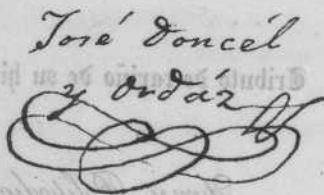 José Doncél
y Ordáz